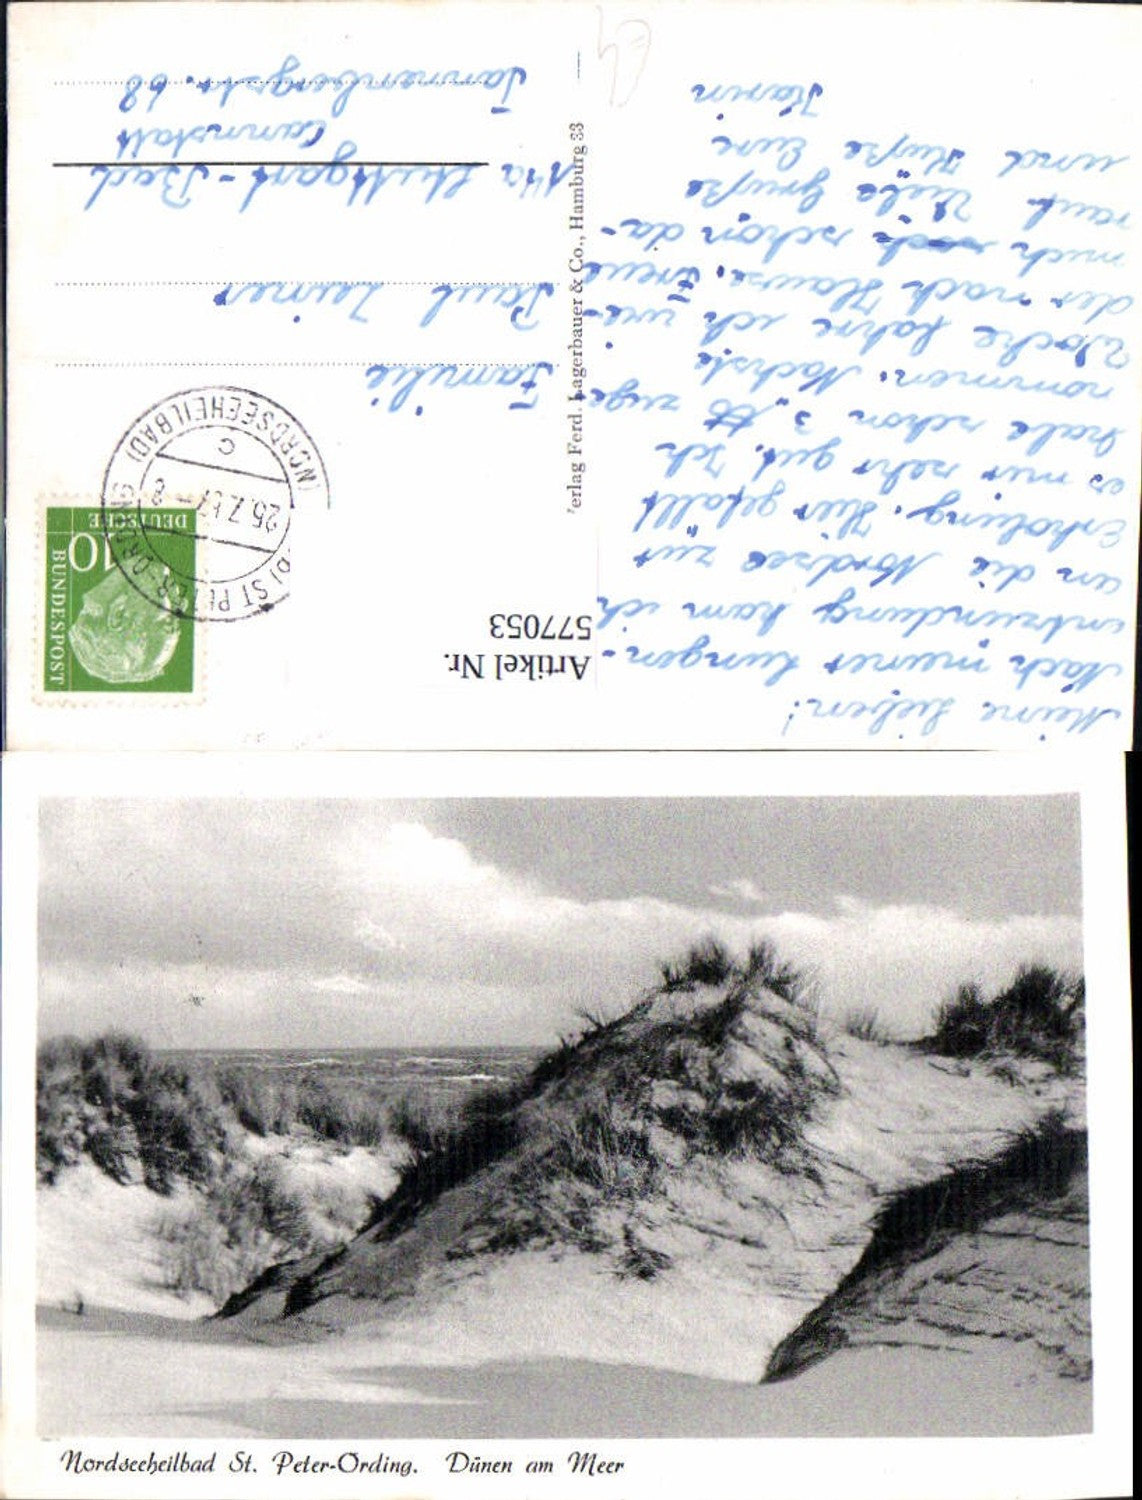 Meine Lieben!
Nach meiner Lungen-
entzündung kam ich
an die Nordsee zur
Erholung. Hier gefällt
es mir sehr gut. Ich
habe schon 3 tb zuge-
nommen. Nächste
Woche fahre ich wie-
der nach Hause. Freue
mich schon da-
rauf. Viele Grüße
und Küße Eure
Karin
Artikel Nr.
577053
Verlag Ferd. Lagerbauer & Co., Hamburg 33
DEUTSCHE
BUNDESPOST
10
ST PETER-ORDING
(NORDSEEHEILBAD)
25.7.57-8
c
Familie
Paul Zeiner
14a Stuttgart-Bad
Cannstatt
Tannenbergstr. 68
Nordseeheilbad St. Peter-Ording. Dünen am Meer